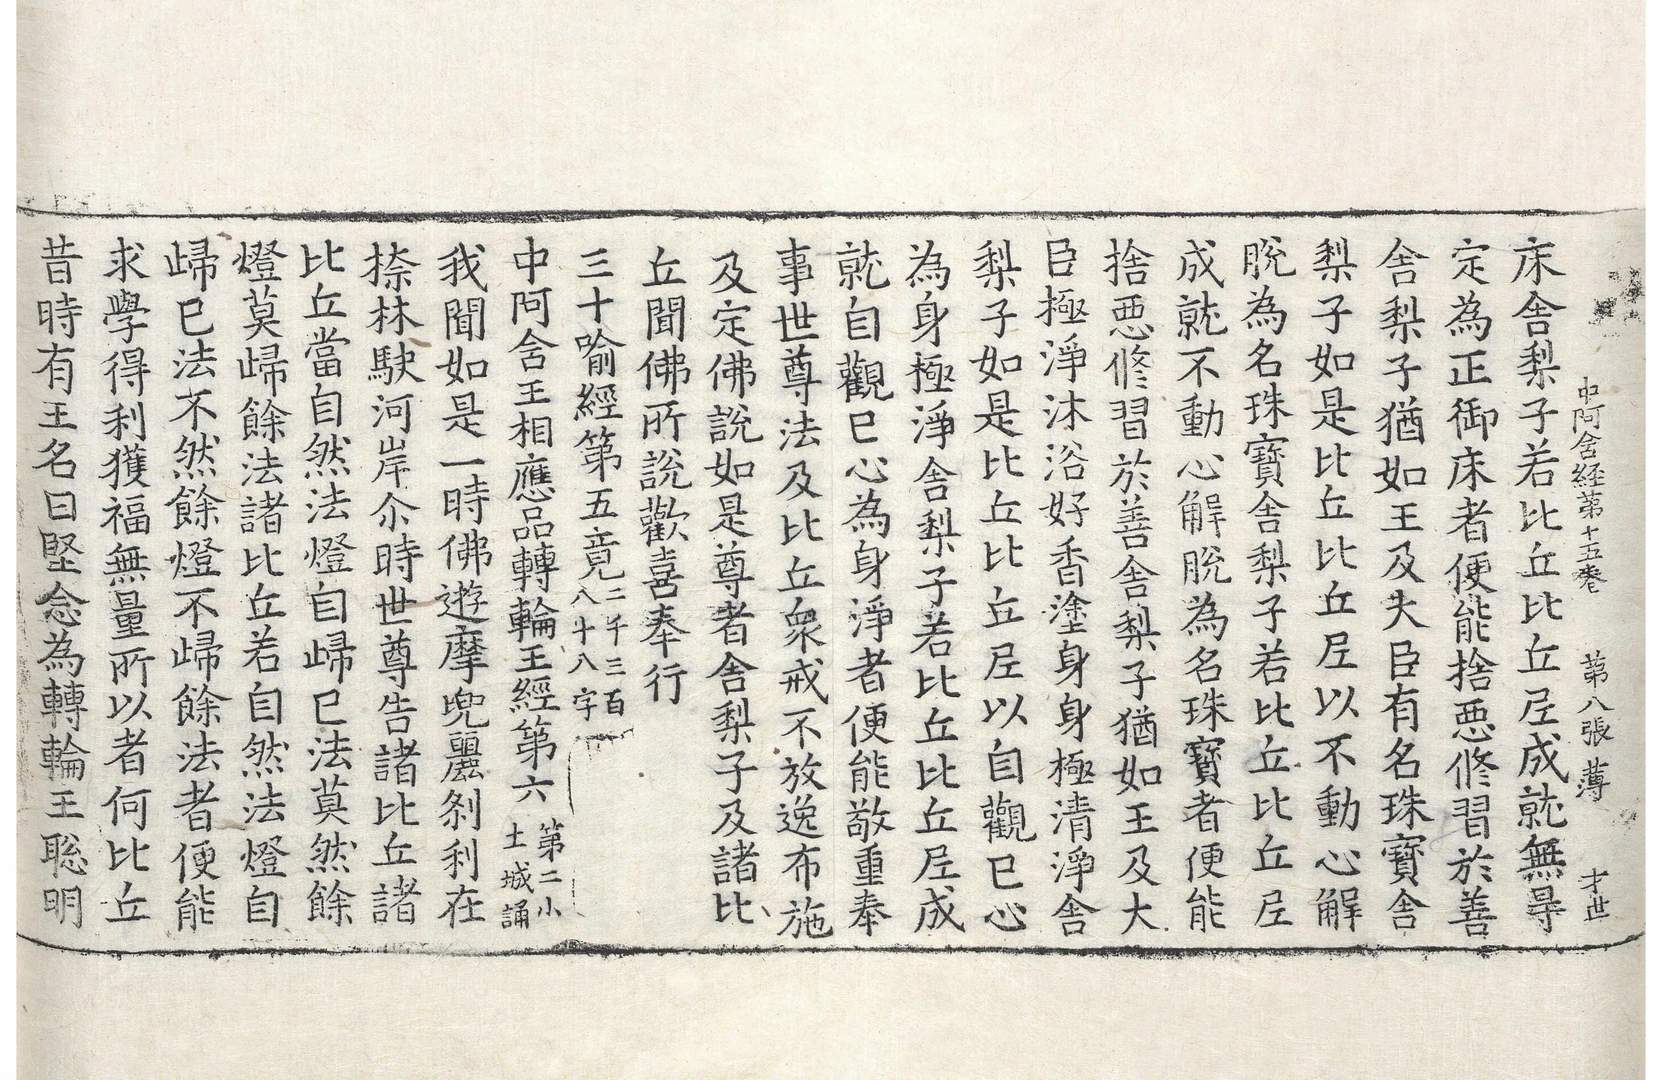 中阿含経第十五卷　第八張　薄　才世
床舍梨子若比丘比丘尼成就無㝵
定為正御床者便能捨惡修習於善
舍梨子猶如王及大臣有名珠寶舍
梨子如是比丘比丘尼以不動心解
脫為名珠寶舍梨子若比丘比丘尼
成就不動心解脫為名珠寶者便能
捨惡修習於善舍梨子猶如王及大
臣極淨沐浴好香塗身身極清淨舍
梨子如是比丘比丘尼以自觀己心
為身極淨舍梨子若比丘比丘尼成
就自觀己心為身淨者便能敬重奉
事世尊法及比丘衆戒不放逸布施
及定佛說如是尊者舍梨子及諸比
丘聞佛所說歡喜奉行
三十喻經第五竟二千三百八十八字
中阿含王相應品轉輪王經第六第二小土城誦
我聞如是一時佛遊摩兜麗剎利在
㮈林駛河岸尒時世尊告諸比丘諸
比丘當自然法燈自歸己法莫然餘
燈莫歸餘法諸比丘若自然法燈自
歸己法不然餘燈不歸餘法者便能
求學得利獲福無量所以者何比丘
昔時有王名曰堅念為轉輪王聡明